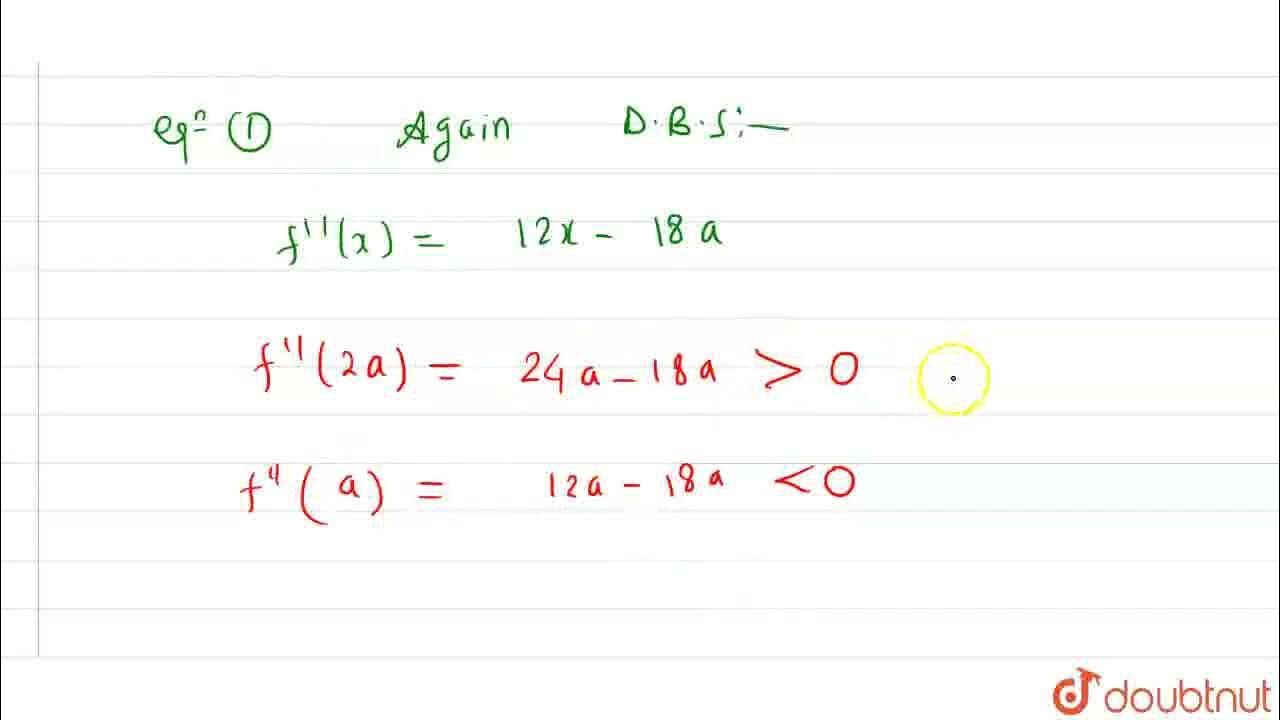 eqⁿ ① Again D.B.S:—
f''(x) = 12x - 18a
f''(2a) = 24a - 18a > 0
f''(a) = 12a - 18a < 0
doubtnut